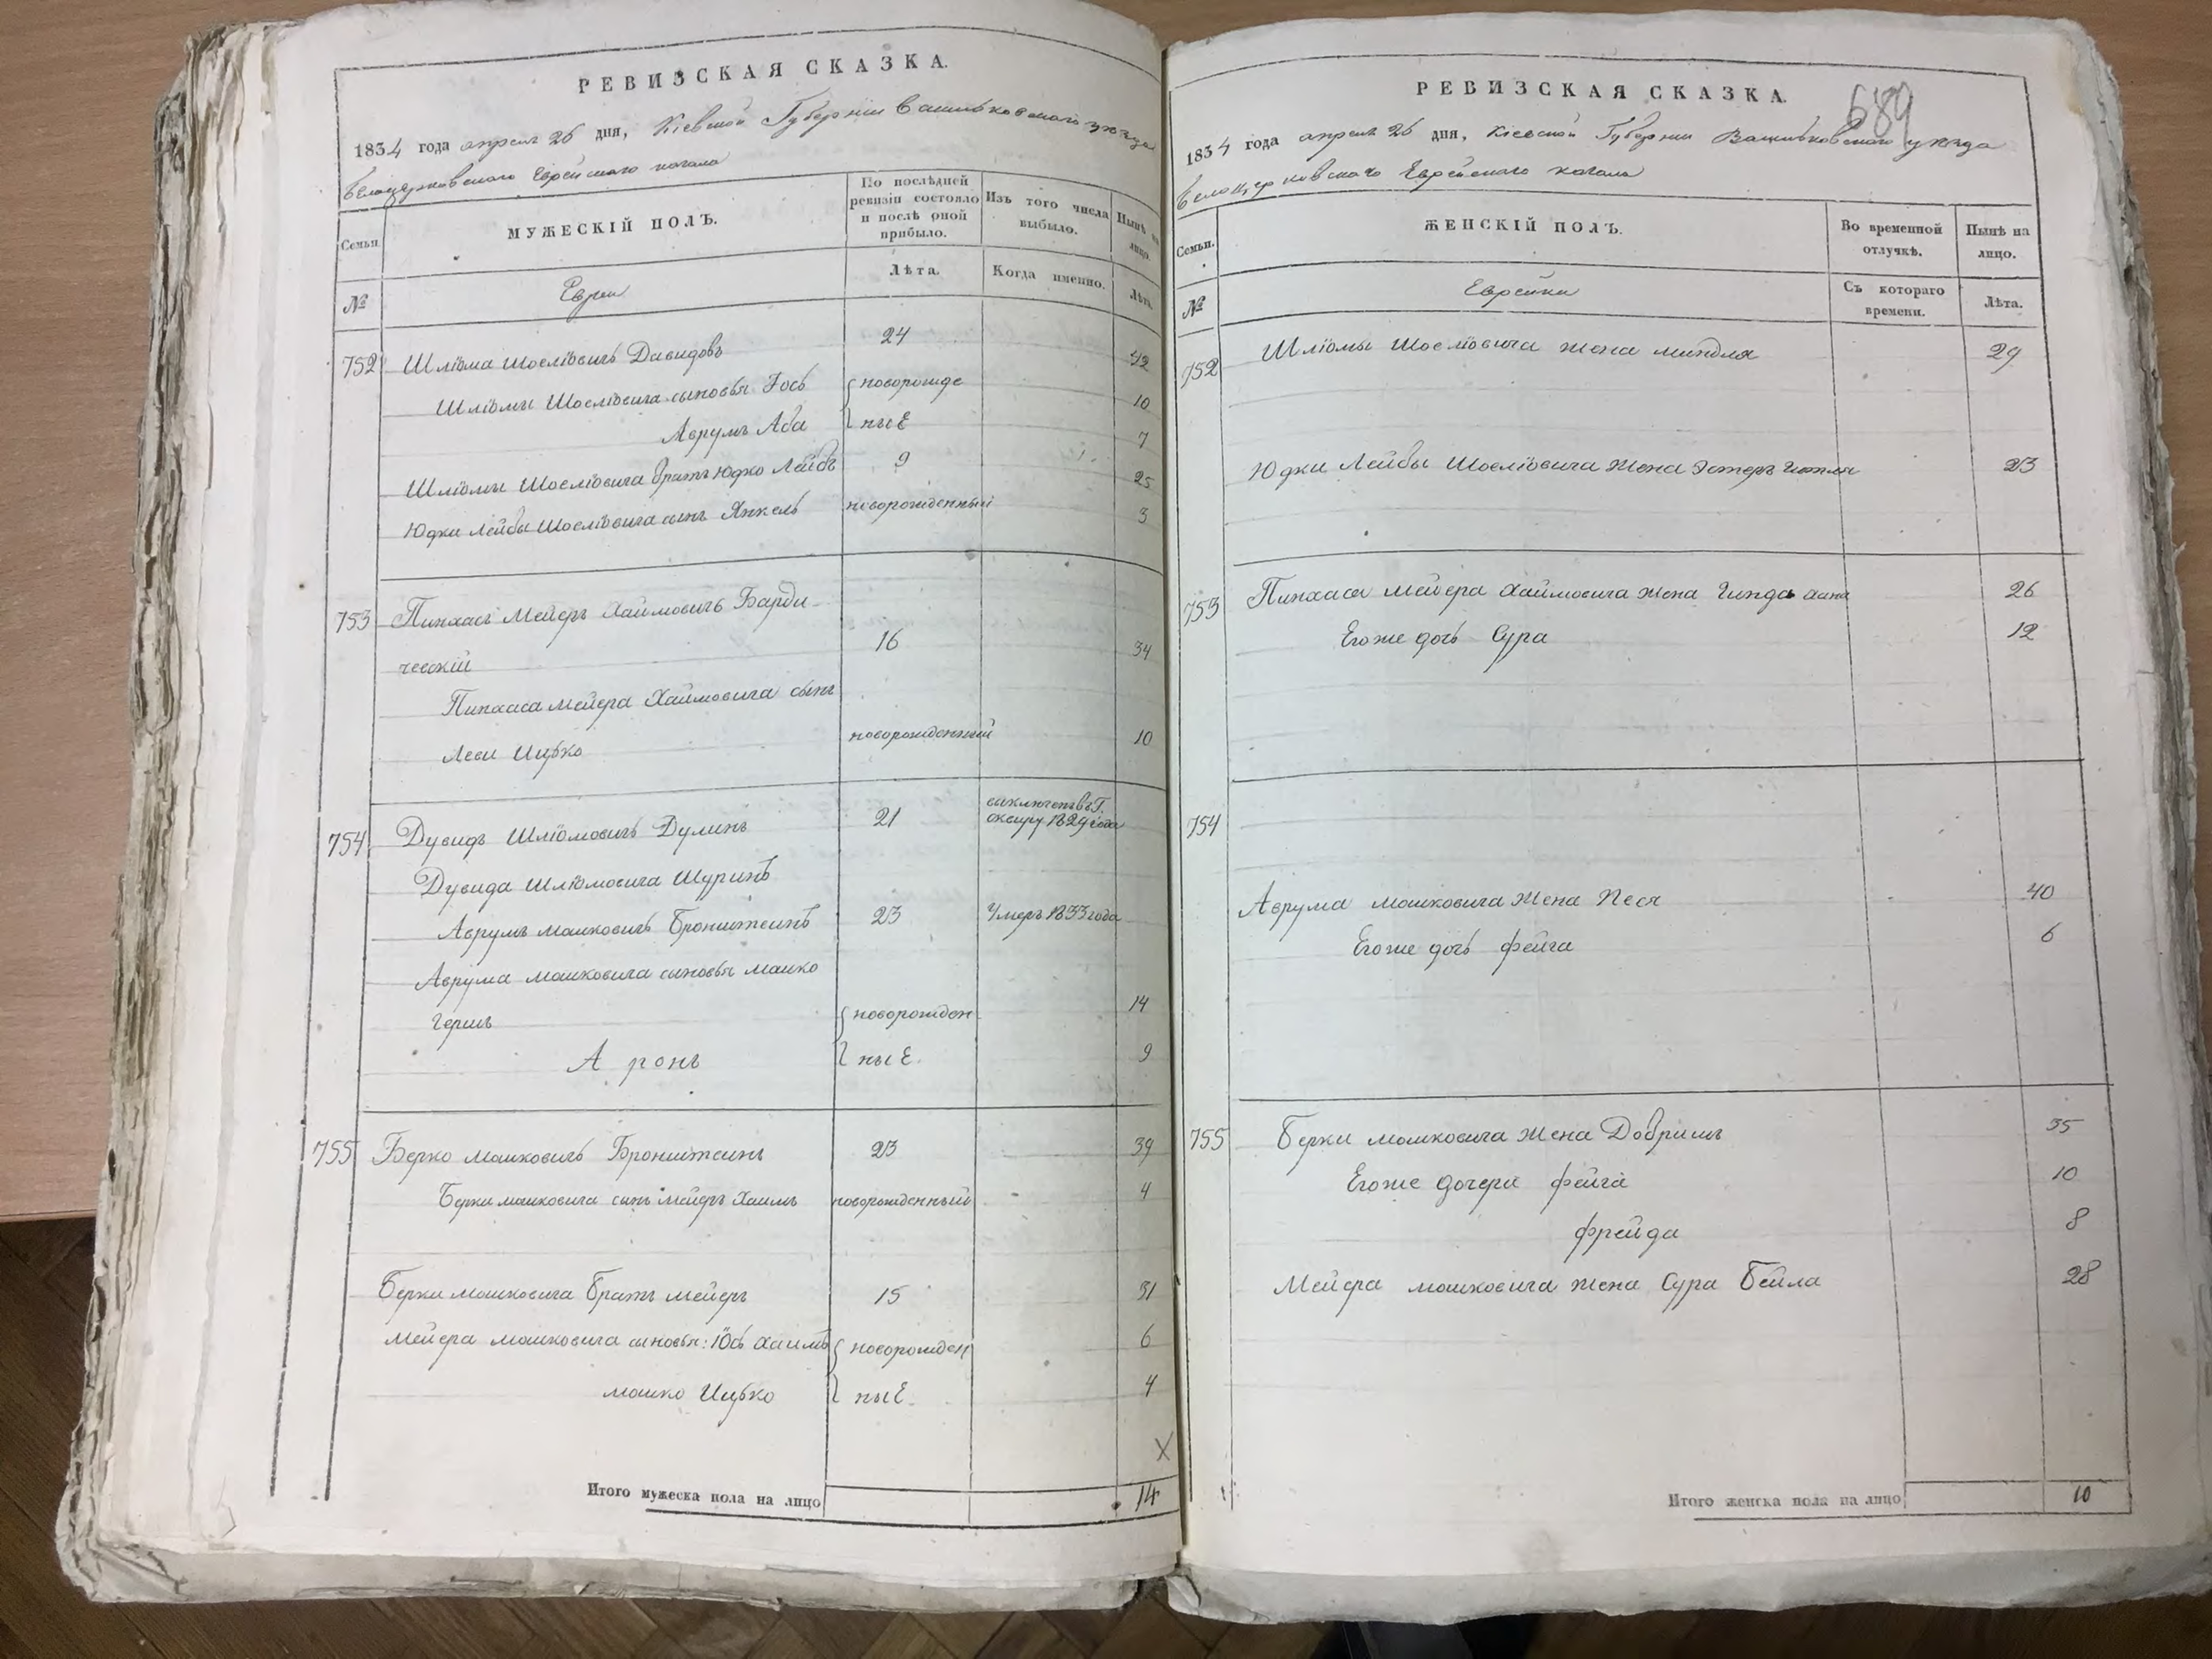 РЕВИЗСКАЯ СКАЗКА.
1834 года апреля 26 дня, Кіевской Губерніи Васильковского уезда
Белоцерковского Еврейского кагала
Семьи.
МУЖЕСКІЙ ПОЛЪ.
По послѣдней ревизіи состояло и послѣ оной прибыло.
Изъ того числа выбыло.
Нынѣ на лицо.
№
Евреи
Лѣта.
Когда именно.
Лѣта.
752 Шліома Шоеліовичъ Давидовъ 24 42
Шліомы Шоеліовича сыновья Іось { новорожде 10
Аврумъ Аба { ные 7
Шліомы Шоеліовича братъ Юдко Лейбъ 9 25
Юдки Лейбы Шоеліовича сынъ Янкель новорожденный 3
753 Пинхасъ Мейеръ Хаймовичъ Барди-
ческій 16 34
Пинхаса Мейера Хаймовича сынъ
Леви Ицько новорожденный 10
754 Дувидъ Шліомовичъ Дулинъ 21 въ Г. Сквиру 1829 года
Дувида Шліомовича Шуринъ
Аврумъ Мошковичъ Бронштейнъ 23 Умеръ 1833 года
Аврума Мошковича сыновья Мошко
Гершъ { новорожден 14
Аронъ { ные. 9
755 Берко Мошковичъ Бронштейнъ 23 39
Берки Мошковича сынъ Мейеръ Хаимъ новорожденный 4
Берки Мошковича Братъ Мейеръ 15 31
Мейера Мошковича сыновья: Юсь Хаимъ { новорожден 6
Мошко Ицько { ные. 4
X
Итого мужеска пола на лицо 14
689
РЕВИЗСКАЯ СКАЗКА.
1834 года апреля 26 дня, Кіевской Губерніи Васильковского уезда
Белоцерковского Еврейского кагала
Семьи.
ЖЕНСКІЙ ПОЛЪ.
Во временной отлучкѣ.
Нынѣ на лицо.
№
Еврейки
Съ котораго времени.
Лѣта.
752 Шліомы Шоеліовича жена Миндля 29
Юдки Лейбы Шоеліовича жена Эстеръ 23
753 Пинхаса Мейера Хаймовича жена Гинда Хана 26
Егоже дочь Сура 12
754
Аврума Мошковича жена Песя 40
Егоже дочь Фейга 6
755 Берки Мошковича жена Добришъ 35
Егоже дочери Фейга 10
Фрейда 8
Мейера Мошковича жена Сура Бейла 28
Итого женска пола на лицо 10